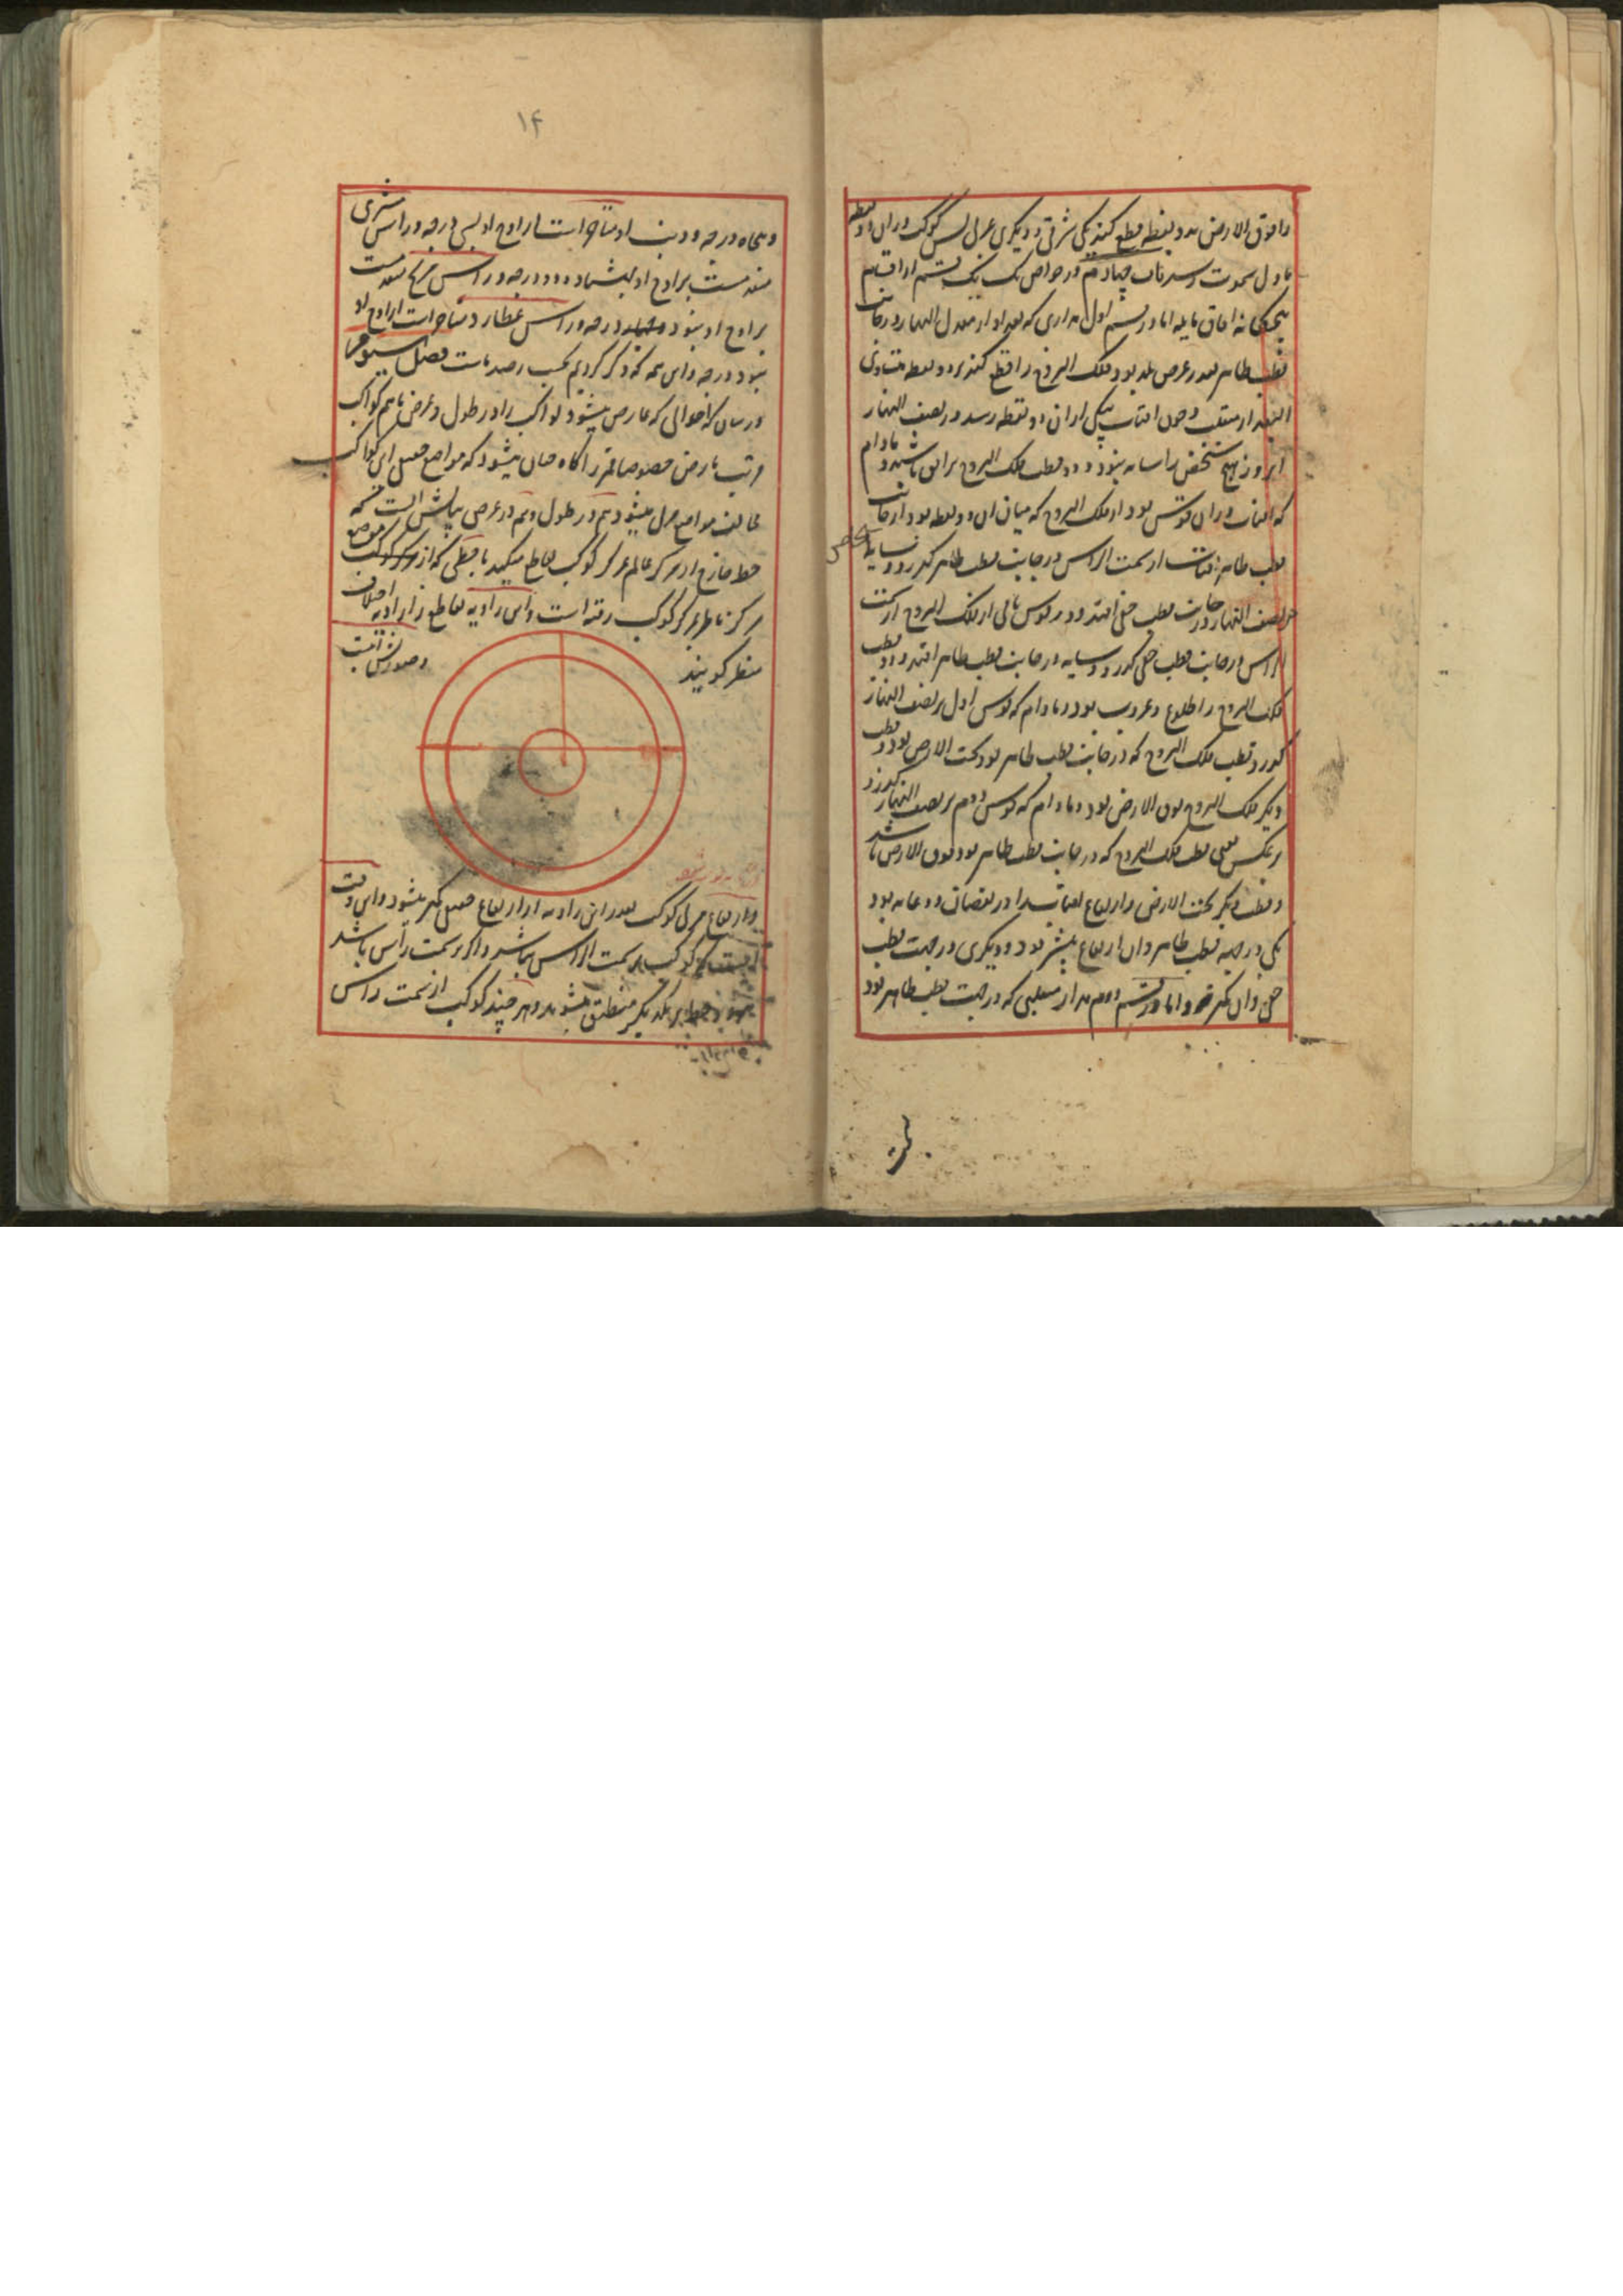 ما فوق الارض بدو نقطه قطع کند یکی شرقی و دیگری غربی پس کوکب در آن دو نقطه
عادل سموت رسد باب چهارم در خواص یک یک قسم از اقسام
پنجگانه آفاق مایله اما در قسم اول مداری که بعد او از معدل النهار در جانب
قطب ظاهر بقدر عرض بلد بود فلک البروج را قطع کند بر دو نقطه متساوی
البعد از منقلب و چون آفتاب بیکی از آن دو نقطه رسد در نصف النهار
آنروز هیچ شخص را سایه نبود و دو قطب فلک البروج بر افق باشند و مادام
که آفتاب در آن قوس بود از فلک البروج که میان آن دو نقطه بود از جانب
قطب ظاهر آفتاب از سمت الراس در جانب قطب ظاهر گذرد و سایه اشخاص
در نصف النهار در جانب قطب خفی افتد و در قوس باقی از فلک البروج از سمت
الراس در جانب قطب خفی گذرد و سایه در جانب قطب ظاهر افتد و دو قطب
فلک البروج را طلوع و غروب بود و مادام که قوس اول بر نصف النهار
گذرد قطب فلک البروج که در جانب قطب ظاهر بود تحت الارض بود و قطب
دیگر فلک البروج فوق الارض بود و مادام که قوس دوم بر نصف النهار گذرد
بر عکس یعنی قطب فلک البروج که در جانب قطب ظاهر بود فوق الارض باشد
و قطب دیگر تحت الارض و ارتفاع آفتاب را در نقصان دو غایه بود
یکی در جهه قطب ظاهر و آن ارتفاع بیشتر بود و دیگری در جهت قطب
خفی و آن کمتر و اما در قسم دوم مدار منقلبی که در جهت قطب ظاهر بود
۱۴
و پنجاه درجه و ذنب او متاخر است از اوج او بسی درجه و راس مشتری
متقدم است بر اوج او بهشتاد درجه و راس مریخ متقدم است
بر اوج او بنود درجه و راس عطارد متاخر است از اوج او
بنود درجه و این همه که ذکر کردیم بحسب رصد باست فصل سیوم
در بیان احوالی که عارض میشود کواکب را در طول و عرض با هم کواکب
مرتب بارض خصوصا قمر را گاه چنان میشود که مواضع حقیقی این کواکب
مخالف مواضع مرئی میشود هم در طول و هم در عرض بیانش آنست که
خط خارج از مرکز عالم بمرکز کوکب تقاطع میکند با خطی که از موضع
مرکز ناظر بمرکز کوکب رفته است و این زاویه تقاطع را زاویه اختلاف
منظر گویند
و صورتش اینست
و ارتفاع مرئی کوکب بقدر این زاویه از ارتفاع حقیقی کمتر میشود و این وقت
کوکب بر سمت الراس نباشد و اگر بر سمت راس باشد
هر دو خط بر یکدیگر منطبق شوند و هر چند کوکب از سمت راس